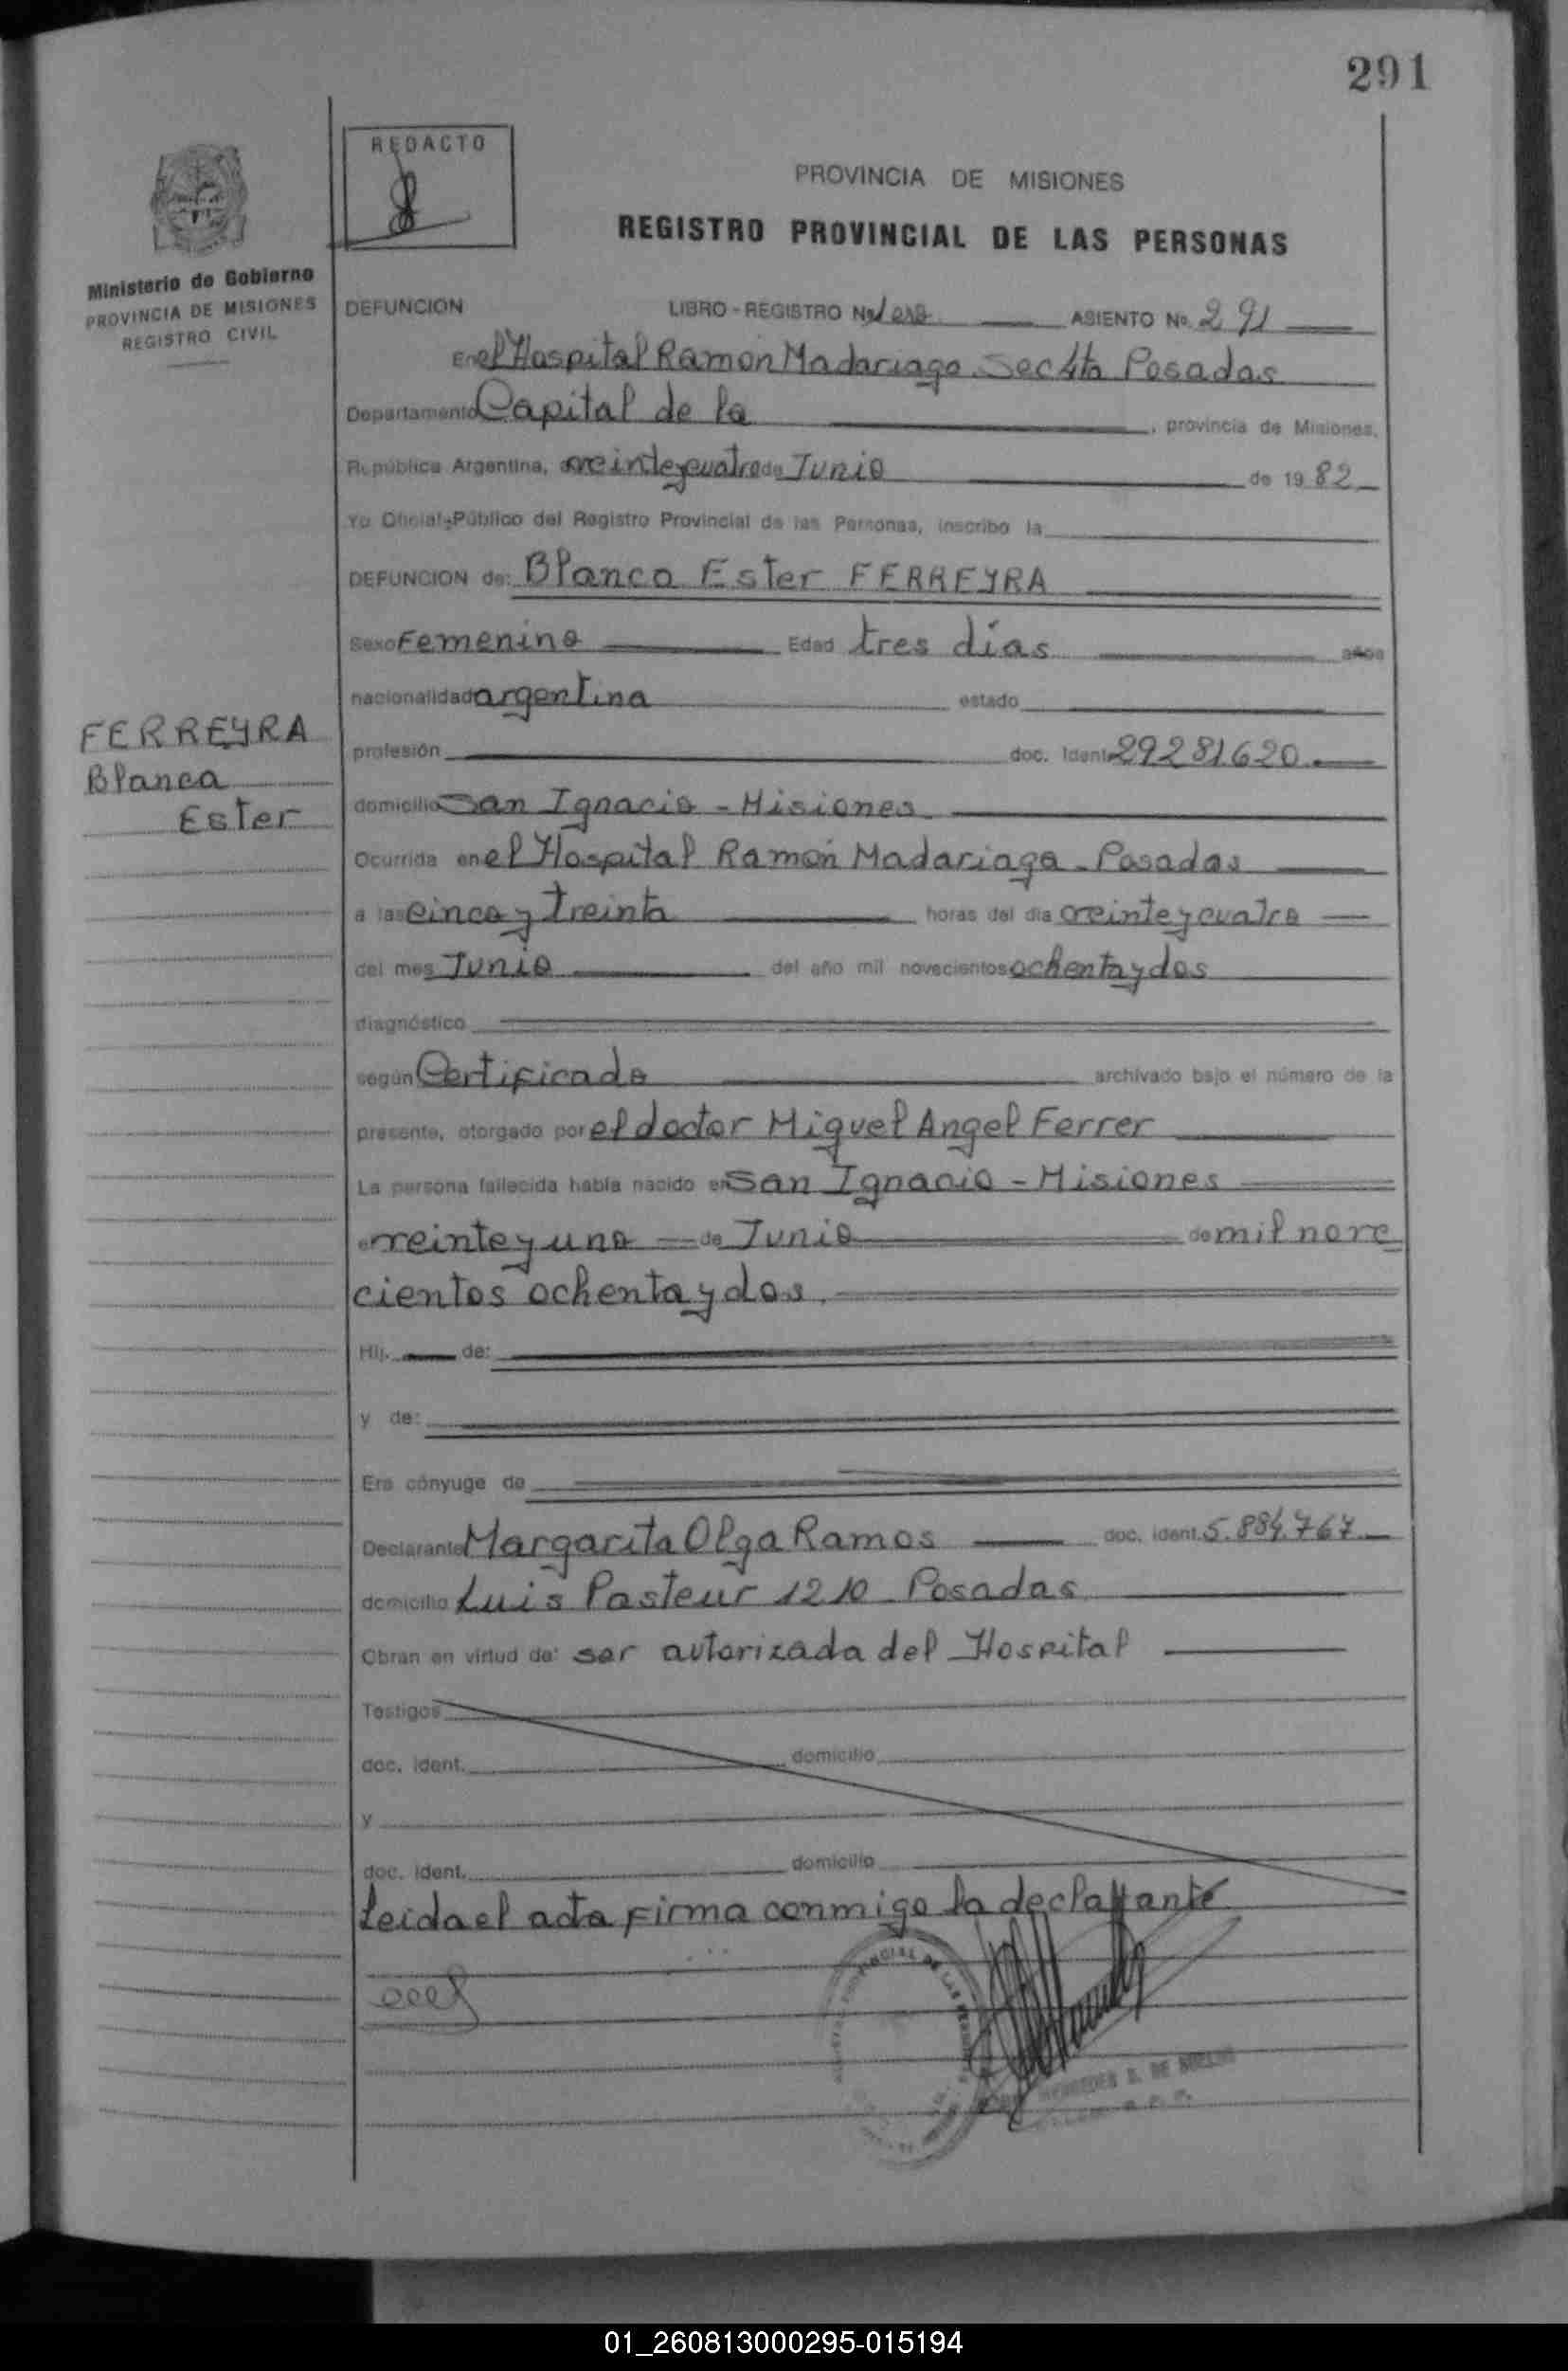 291
REDACTO
PROVINCIA DE MISIONES
REGISTRO PROVINCIAL DE LAS PERSONAS
Ministerio de Gobierno
PROVINCIA DE MISIONES
REGISTRO CIVIL
DEFUNCION LIBRO - REGISTRO No 1ero ASIENTO No. 291
En el Hospital Ramón Madariaga Sec 4ta Posadas
Departamento Capital de la , provincia de Misiones,
República Argentina, a veinte y cuatro de Junio de 1982
Yo Oficial Público del Registro Provincial de las Personas, inscribo la
DEFUNCION de: Blanca Ester FERREYRA
Sexo Femenino Edad tres días años
nacionalidad argentina estado
FERREYRA
Blanca
Ester
profesión doc. Ident. 29281620
domicilio San Ignacio - Misiones
Ocurrida en el Hospital Ramón Madariaga - Posadas
a las cinco y treinta horas del día veinte y cuatro
del mes Junio del año mil novecientos ochenta y dos
diagnóstico
según Certificado archivado bajo el número de la
presente, otorgado por el doctor Miguel Angel Ferrer
La persona fallecida había nacido en San Ignacio - Misiones
el veinte y uno de Junio de mil nove
cientos ochenta y dos.
Hij. de:
y de:
Era cónyuge de
Declarante Margarita Olga Ramos doc. ident. 5.884.767
domicilio Luis Pasteur 1210 Posadas
Obran en virtud de: ser autorizada del Hospital
Testigos
doc. ident. domicilio
y
doc. ident. domicilio
Leida el acta firma conmigo la declarante
01_260813000295-015194